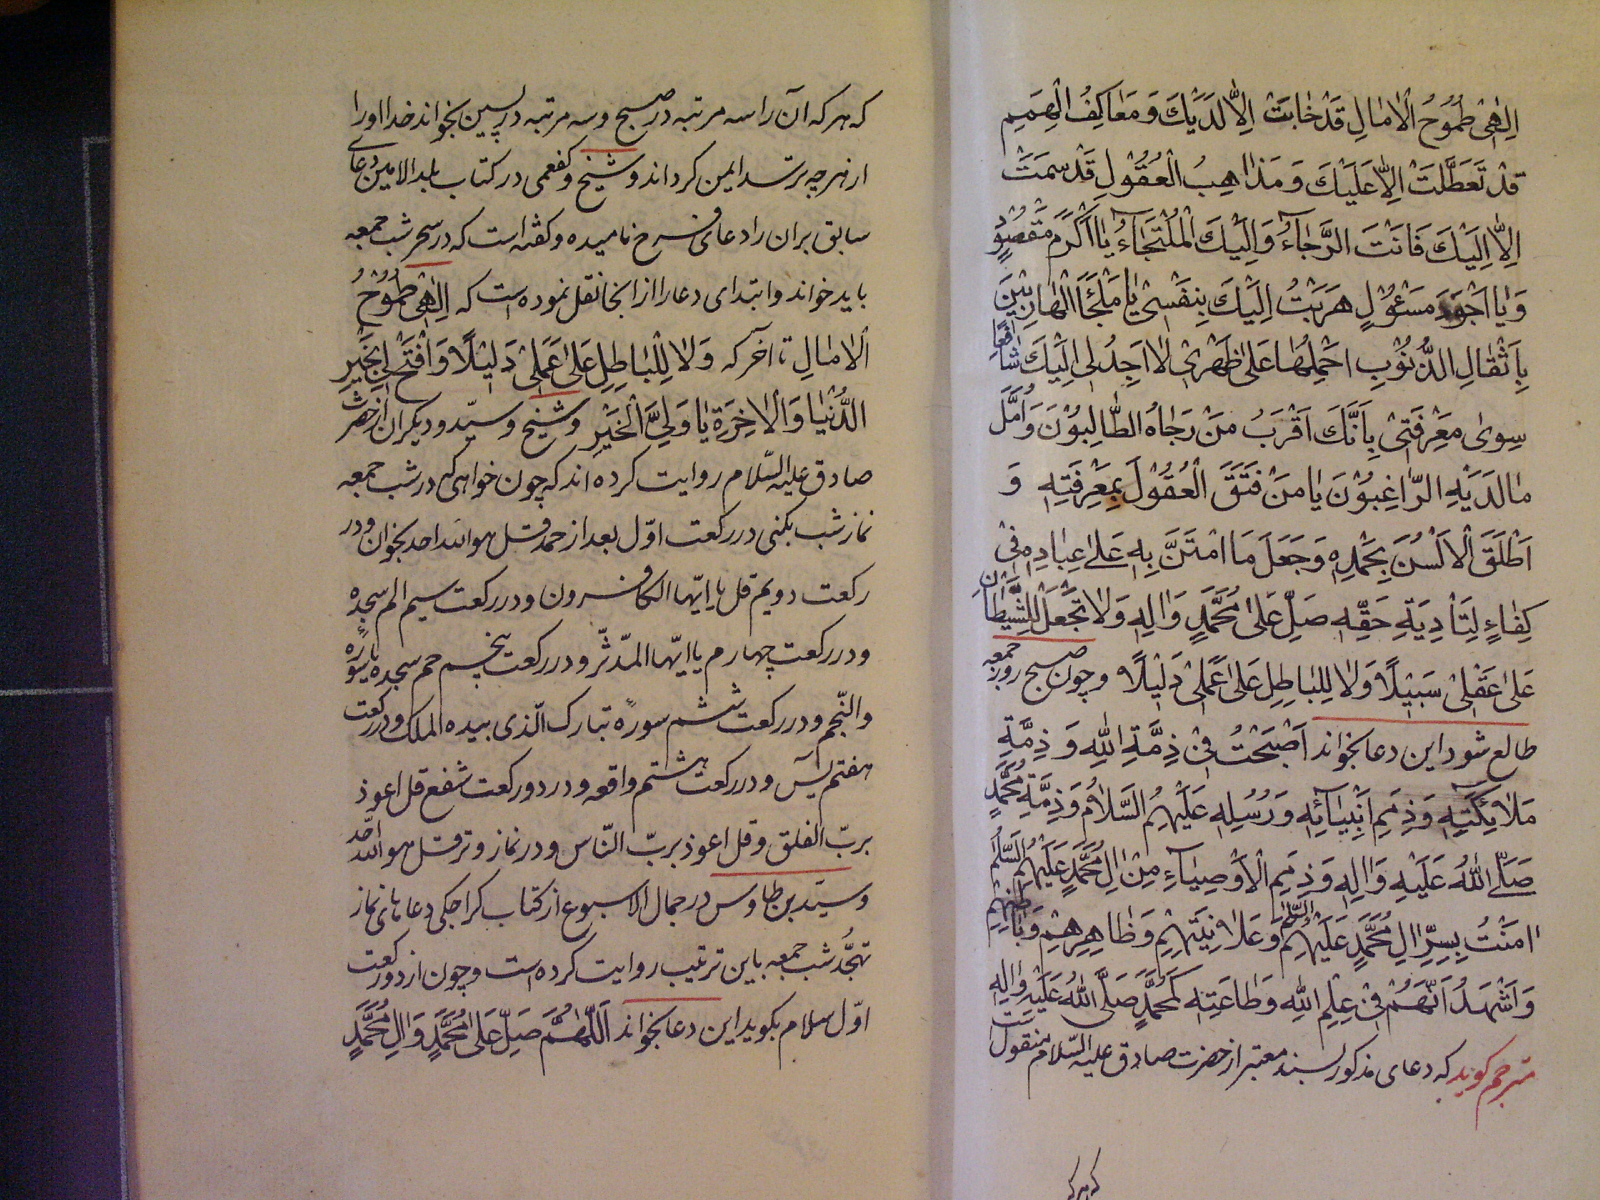 اِلٰهی طُمُوحُ الْاٰمٰالِ قَدْ خٰابَتْ اِلّٰا لَدَیْكَ وَ مَعٰاكِفُ الْهِمَمِ
قَدْ تَعَطَّلَتْ اِلّٰا عَلَیْكَ وَ مَذٰاهِبُ الْعُقُولِ قَدْ سَمَتْ
اِلّٰا اِلَیْكَ فَاَنْتَ الرَّجٰآءُ وَ اِلَیْكَ الْمُلْتَجَاءُ یٰا اَكْرَمَ مَقْصُودٍ
وَ یٰا اَجْوَدَ مَسْئُولٍ هَرَبْتُ اِلَیْكَ بِنَفْسی یٰا مَلْجَأَ الْهٰارِبینَ
بِاَثْقٰالِ الذُّنُوبِ احْمِلُهٰا عَلیٰ ظَهْری لٰا اَجِدُ لی اِلَیْكَ شٰافِعًا
سِویٰ مَعْرِفَتی بِاَنَّكَ اَقْرَبُ مَنْ رَجٰاهُ الطّٰالِبُونَ وَ اَمَّلَ
مٰا لَدَیْهِ الرّٰاغِبُونَ یٰا مَنْ فَتَقَ الْعُقُولَ بِمَعْرِفَتِهِ وَ
اَطْلَقَ الْاَلْسُنَ بِحَمْدِهِ وَ جَعَلَ مَا امْتَنَّ بِهِ عَلیٰ عِبٰادِهِ فی
كِفٰاءٍ لِتَأْدِیَةِ حَقِّهِ صَلِّ عَلیٰ مُحَمَّدٍ وَ اٰلِهِ وَ لٰا تَجْعَلْ لِلشَّیْطٰانِ
عَلیٰ عَقْلی سَبیلًا وَ لٰا لِلْبٰاطِلِ عَلیٰ عَمَلی دَلیلًا و چون صبح روز جمعه
طالع شود این دعا بخواند اَصْبَحْتُ فی ذِمَّةِ اللهِ وَ ذِمَّةِ
مَلٰائِكَتِهِ وَ ذِمَمِ اَنْبِیٰآئِهِ وَ رُسُلِهِ عَلَیْهِمُ السَّلٰامُ وَ ذِمَّةِ مُحَمَّدٍ
صَلَّی اللهُ عَلَیْهِ وَ اٰلِهِ وَ ذِمَمِ الْاَوْصِیٰآءِ مِنْ اٰلِ مُحَمَّدٍ عَلَیْهِمُ السَّلٰمُ
اٰمَنْتُ بِسِرِّ اٰلِ مُحَمَّدٍ عَلَیْهِمُ السَّلٰمُ وَ عَلٰانِیَتِهِمْ وَ ظٰاهِرِهِمْ وَ بٰاطِنِهِمْ
وَ اَشْهَدُ اَنَّهُمْ فی عِلْمِ اللهِ وَ طٰاعَتِهِ كَمُحَمَّدٍ صَلَّی اللهُ عَلَیْهِ وَ اٰلِهِ
مترجم كوید كه دعای مذكور بسند معتبر از حضرت صادق علیه السّلام منقول است
كه هر كه
كه هر كه آن را سه مرتبه در صبح و سه مرتبه در پسین بخواند خدا او را
از هر چه ترسد ایمن كرداند و شیخ و كفعمی در كتاب بلد الامین دعای
سابق بر آن را دعای فرج نامیده و كفته است كه در سحر شب جمعه
باید خواند و ابتدای دعا را از اینجا نقل نموده است كه اِلٰهی طُمُوحُ
الْاٰمٰالِ تا آخر كه وَ لٰا لِلْبٰاطِلِ عَلیٰ عَمَلی دَلیلًا وَ افْتَحْ لی بِخَیْرِ
الدُّنْیٰا وَ الْاٰخِرَةِ یٰا وَلِیَّ الْخَیْرِ و شیخ و سیّد و دیكران از حضرت
صادق علیه السّلام روایت كرده اند كه چون خواهی كه در شب جمعه
نماز شب بكنی در ركعت اوّل بعد از حمد قل هو الله احد بخوان و در
ركعت دویم قل یا ایّها الكافرون و در ركعت سیم الم سجده
و در ركعت چهارم یا ایّها المدّثّر و در ركعت پنجم حم سجده یا سوره
و النّجم و در ركعت ششم سورۀ تبارك الّذی بیده الملك و در ركعت
هفتم یٓس و در ركعت هشتم واقعه و در دو ركعت شفع قل اعوذ
بربّ الفلق و قل اعوذ بربّ النّاس و در نماز وتر قل هو الله احد
و سیّد بن طاوس در جمال الاسبوع از كتاب كراجكی دعاهای نماز
تهجُّد شب جمعه باین ترتیب روایت كرده است و چون از دو ركعت
اوّل سلام بكوید این دعا بخواند اَللّٰهُمَّ صَلِّ عَلیٰ مُحَمَّدٍ وَ اٰلِ مُحَمَّدٍ